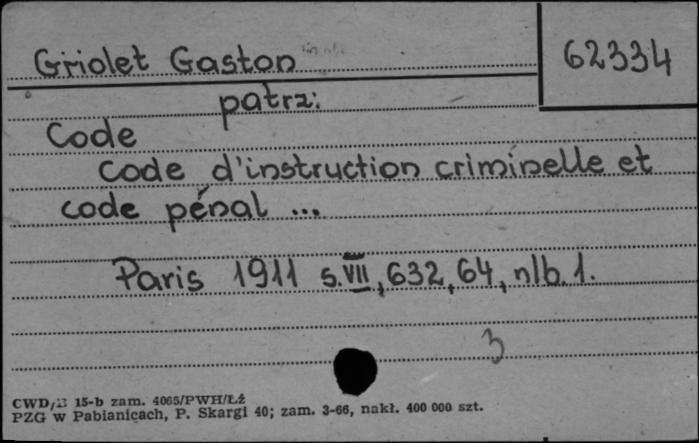 Griolet Gaston
62334
patrz:
Code
Code d'instruction criminelle et
code pénal ...
Paris 1911 s. VII, 632, 64, nlb. 1.
3
CWD/B 15-b zam. 4065/PWH/Łź
PZG w Pabianicach, P. Skargi 40; zam. 3-66, nakł. 400 000 szt.